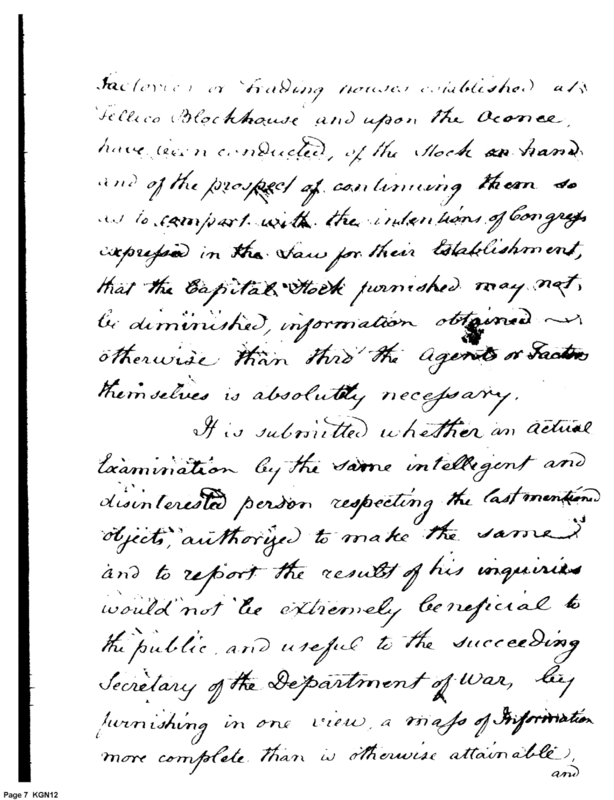 Factories or Trading houses established at
Tellico Blockhouse and upon the Oconee,
have been conducted, of the Stock on hand
and of the prospect of continuing them so
as to comport with the intentions of Congress
expressed in the Law for their Establishment,
that the Capital Stock furnished may not,
be diminished, information obtained
otherwise than thro' the Agents or Factors
themselves is absolutely necessary.
It is submitted whether an actual
Examination by the same intelligent and
disinterested person respecting the last mentioned
objects, authorized to make the same
and to report the results of his inquiries
would not be extremely beneficial to
the public, and useful to the succeeding
Secretary of the Department of War, by
furnishing in one view, a mass of Information
more complete than is otherwise attainable,
and
Page 7 KGN12